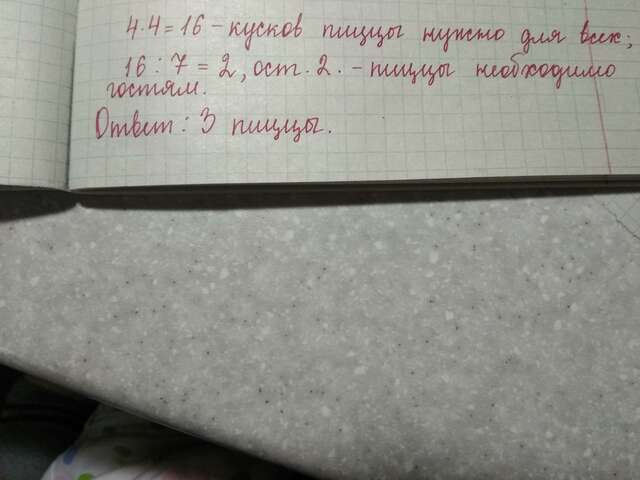 4·4=16 - кусков пиццы нужно для всех;
16:7=2, ост. 2. - пиццы необходимо
гостям.
Ответ: 3 пиццы.